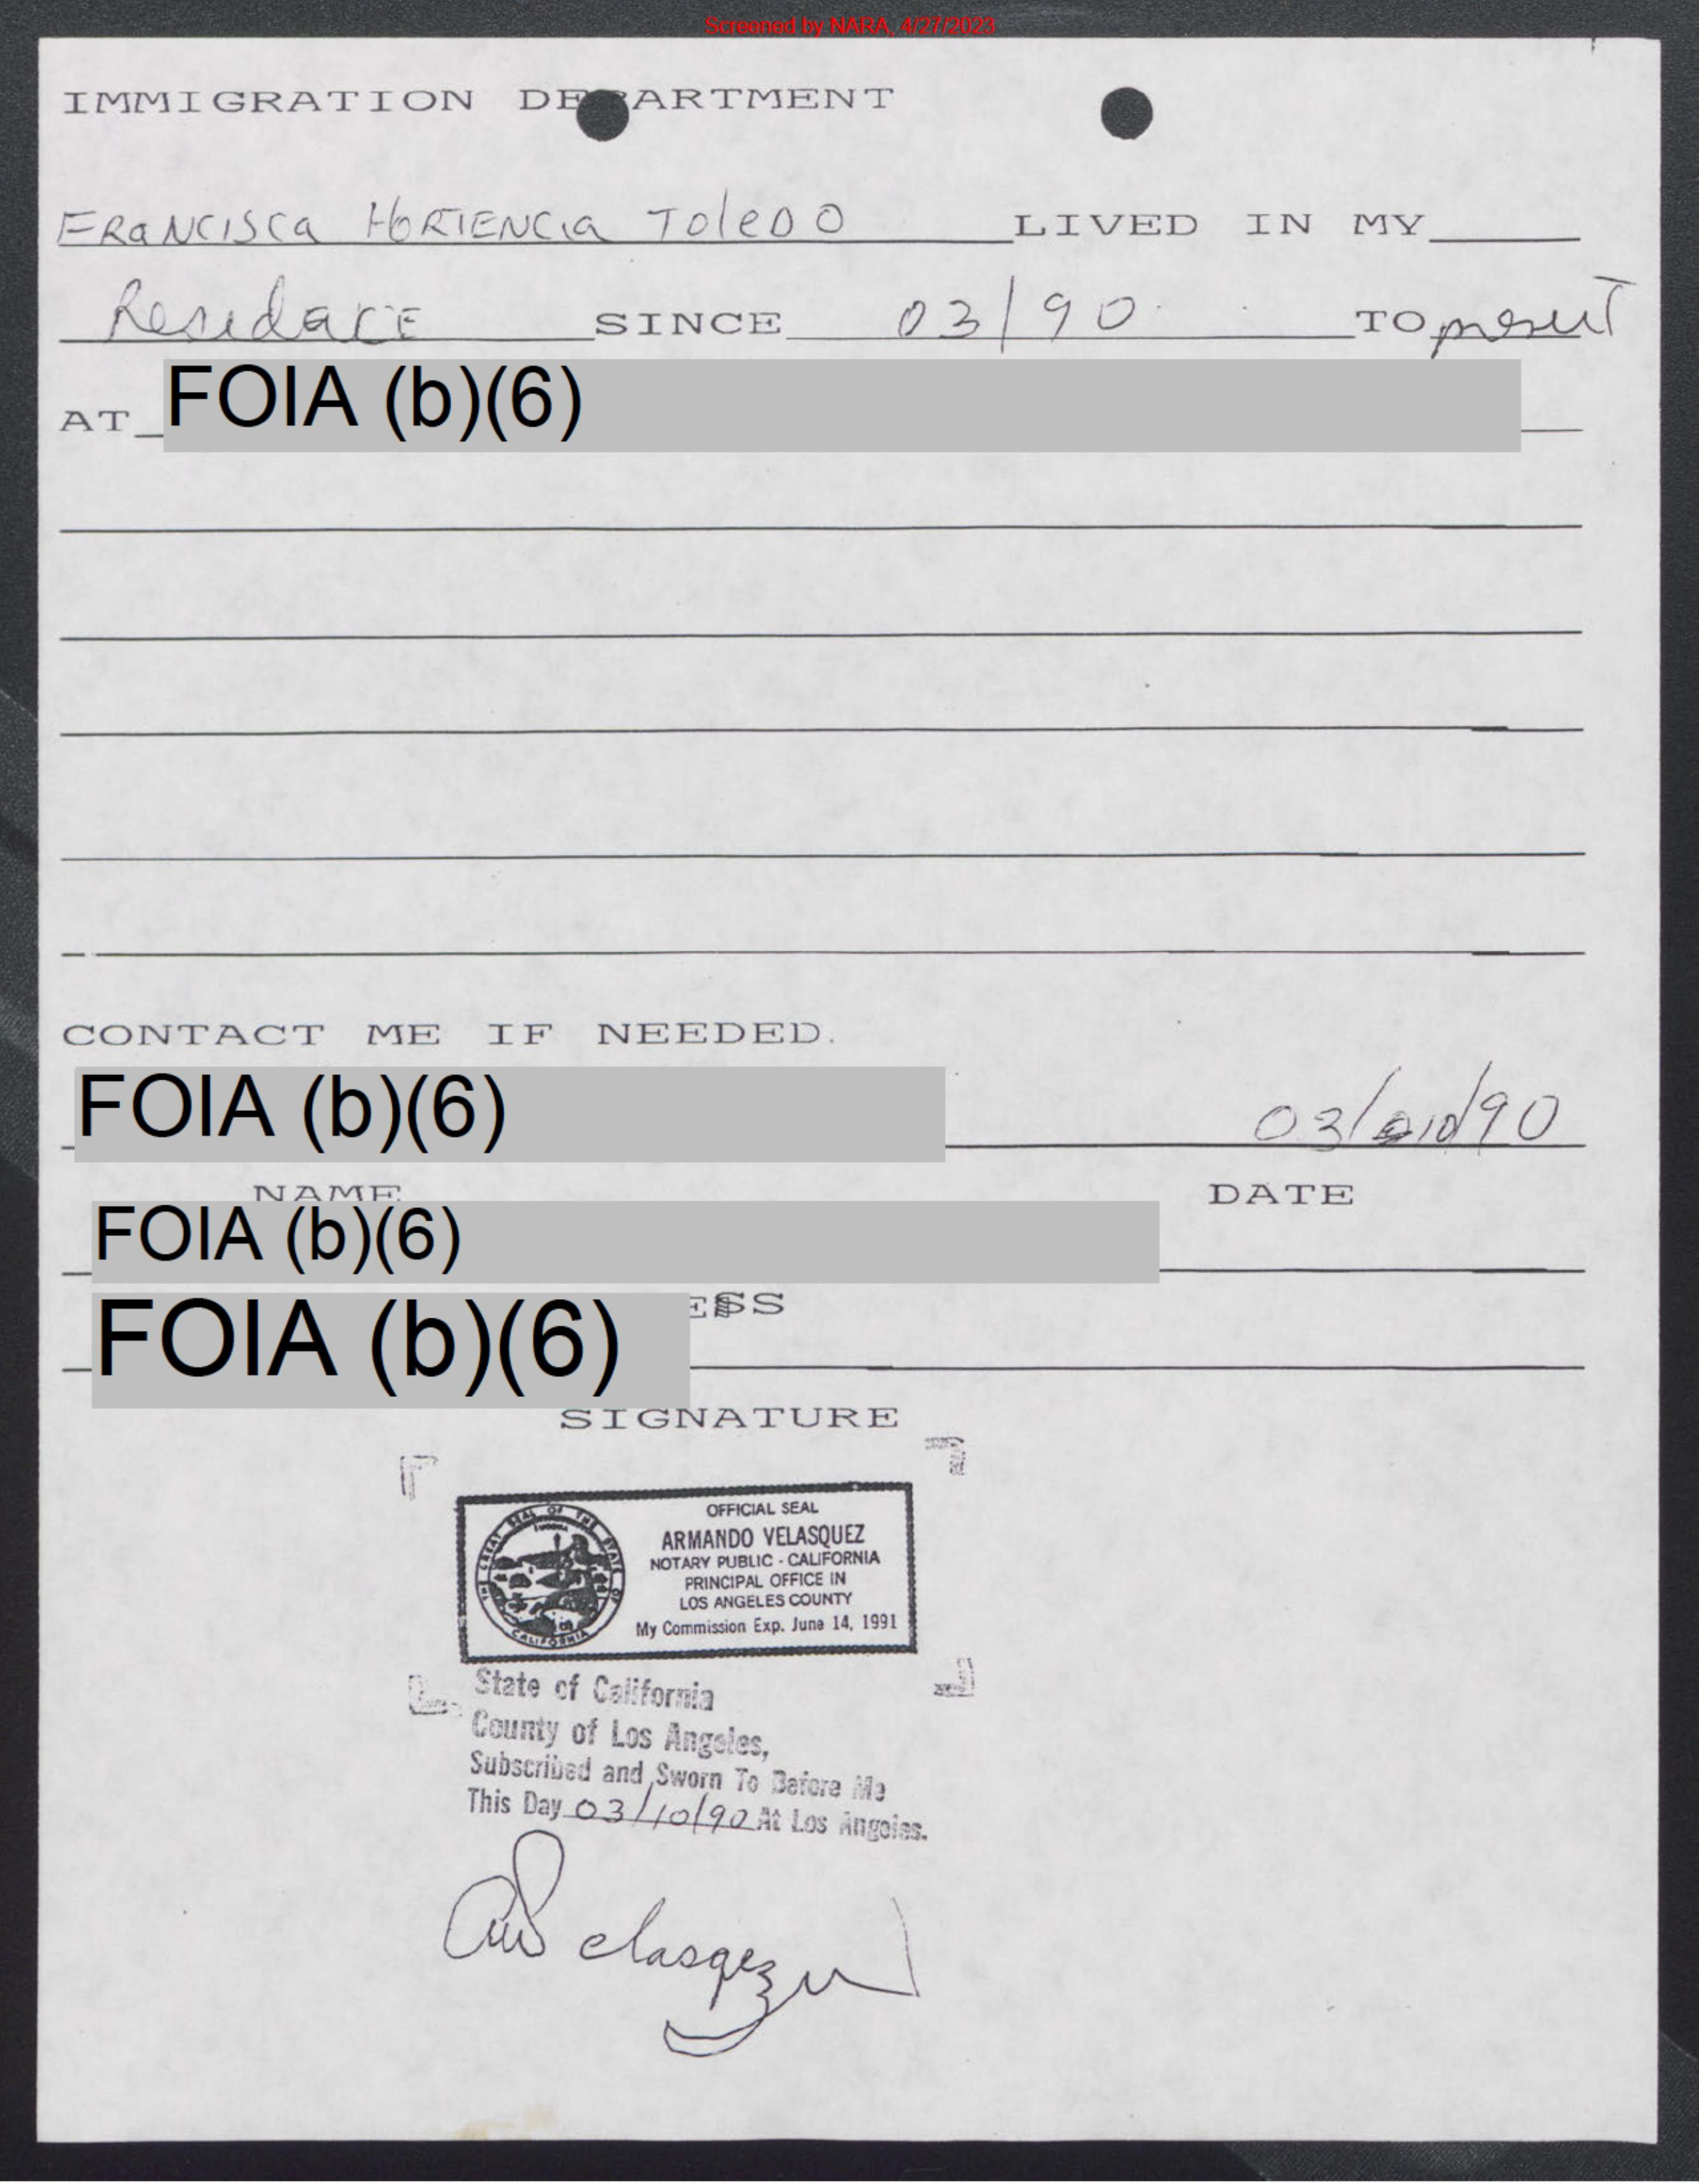 Screened by NARA, 4/27/2023
IMMIGRATION DEPARTMENT
FRaNCISCa HORTENCIa ToleDO LIVED IN MY
Residace SINCE 03/90 TO present
AT FOIA (b)(6)
CONTACT ME IF NEEDED.
FOIA (b)(6) 03/10/90
NAME DATE
FOIA (b)(6)
FOIA (b)(6) ESS
SIGNATURE
THE GREAT SEAL OF THE STATE OF CALIFORNIA
OFFICIAL SEAL
ARMANDO VELASQUEZ
NOTARY PUBLIC - CALIFORNIA
PRINCIPAL OFFICE IN
LOS ANGELES COUNTY
My Commission Exp. June 14, 1991
State of California
County of Los Angeles,
Subscribed and Sworn To Before Me
This Day 03/10/90 At Los Angeles.